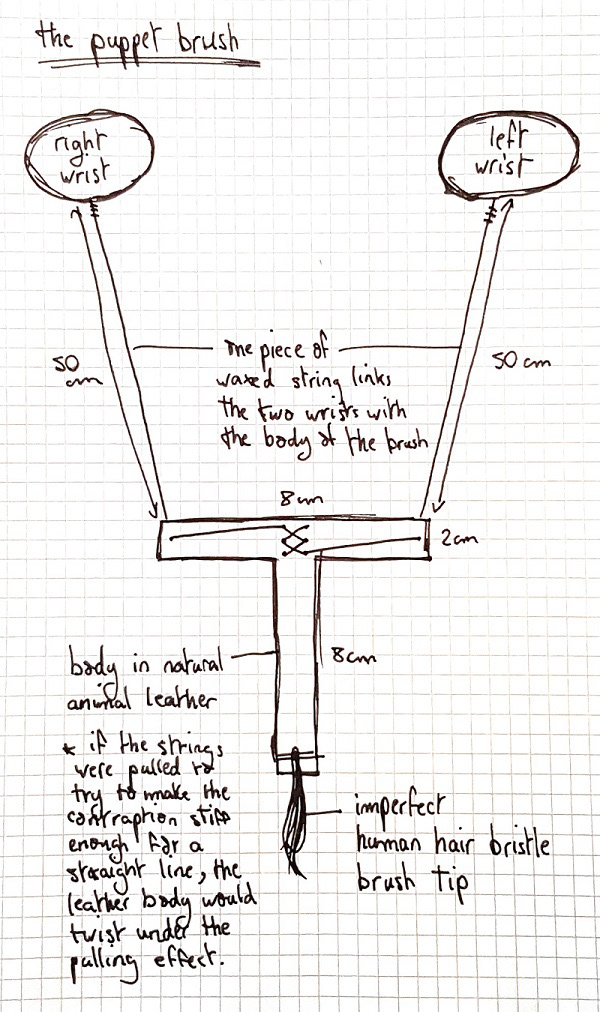 the puppet brush
right
wrist
left
wrist
50
cm
one piece of
waxed string links
the two wrists with
the body of the brush
50 cm
8cm
2cm
8cm
body in natural
animal leather
* if the strings
were pulled to
try to make the
contraption stiff
enough for a
straight line, the
leather body would
twist under the
pulling effect.
imperfect
human hair bristle
brush tip